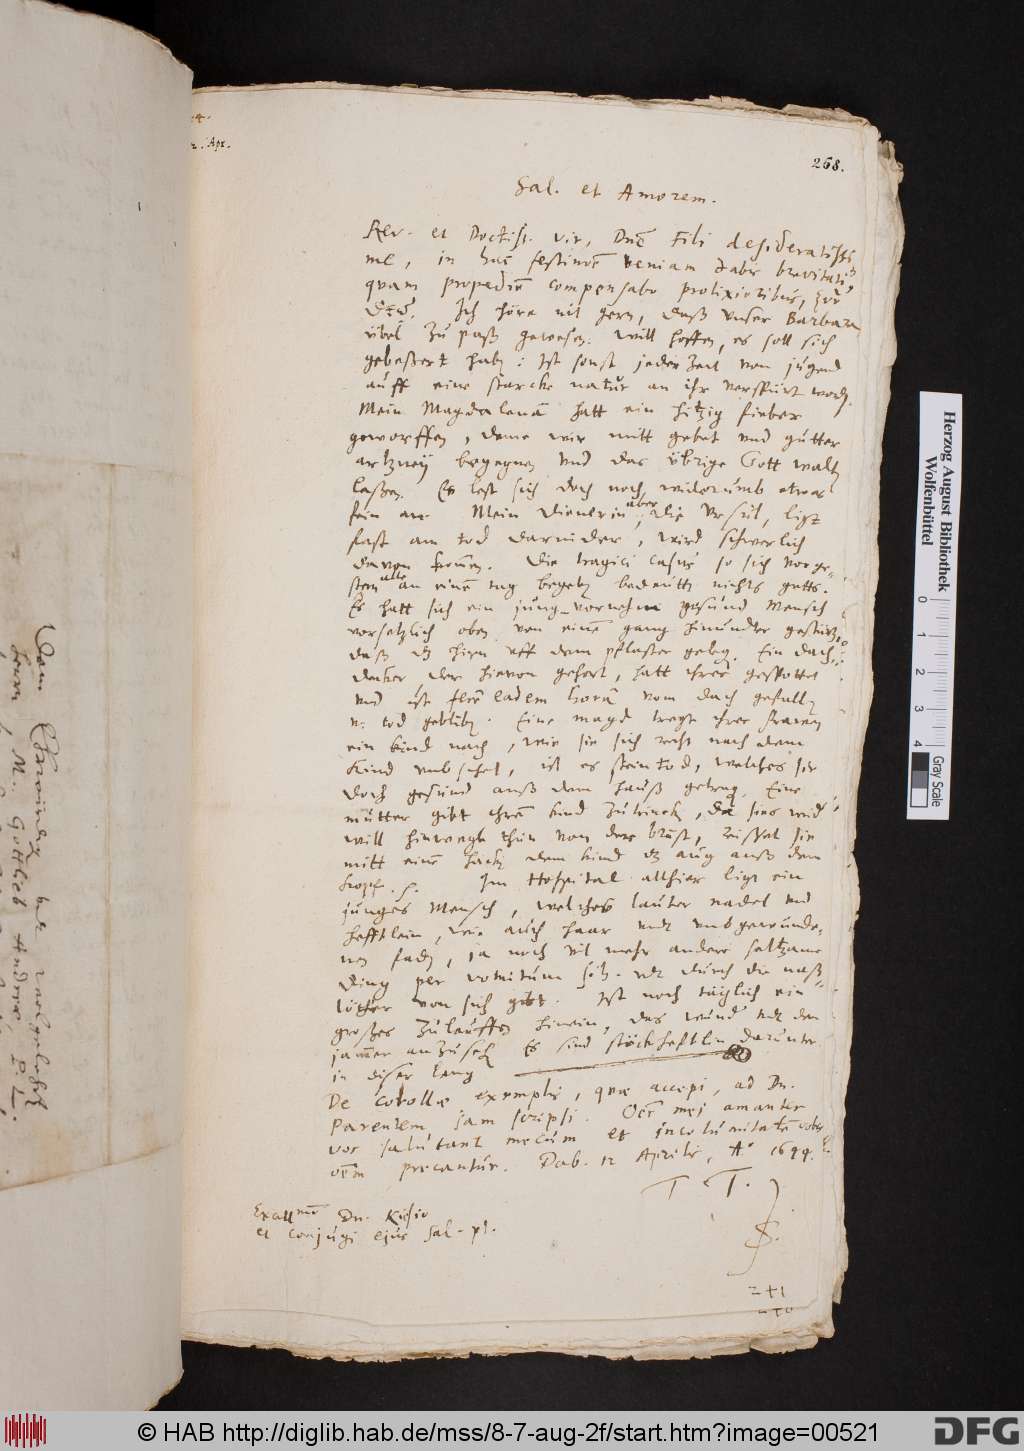 268.
Sal. et Amorem.
Rev. et Doctiss. vir, Dne Fili desideratissi
me, in hac festinone veniam dabis brevitati,
quam propedie compensabo prolixioribus,
Ich höre nit gern, daß unser Barbara
übel zu paß gewesen. Will hoffen, es soll sich
gebeßert habn: Ist sonst jeder Zeit von jugend
auff eine starcke natur an ihr verspürt wordn.
Mein Magdalena hatt ein hitzig fieber
geworffen, deme wir mitt gebet und gutter
artzney begegnen und das übrige Gott waltn
laßen. Es lest sich doch noch widerumb etwas
fein an. Mein Dienerin aber, die Ursul, ligt
fast am tod darnider, wird schwerlich
davon kommen. Die tragici casus so sich vorge-
stern alle an einem tag begebn bedeuttn nichts guts.
Es hatt sich ein jung vornehm gesund Mensch
vorsetzlich oben von einem gang hinunder gestürzt,
daß dz hirn uff dem pflaster gelegn. Ein dach-
decker der hievon gehort, hatt ihrer gespottet
und ist fere eadem hora vom dach gefalln
u. tod geblibn. Eine magd tregt ihrer frawen
ein kind nach, wie sie sich recht nach dem
Kind umbsihet, ist es stein tod, welches sie
doch gesund auß dem hauß getragn. Eine
mutter gibt ihrem kind zutrincken, da sies wid
will hinwegk thun von der brust, reisset sie
mitt einem hackn dem kind dz aug auß dem
kopf. Im Hospital allhier ligt ein
junges Mensch, welches lauter nadel und
hefftlein, wie auch haar mit umbgewunde-
nen fadn, ja noch vil mehr andere seltzame
ding per vomitum und durch die naß-
löcher von sich gibt. Ist noch täglich ein
großes zulauffen hinein, das wund und den
jammer anzusehn. Es sind stöckhefftlin darunter
in diser leng
De Corollæ exemplis, quæ accepi, ad Dn.
Parentem jam scripsi. Oes mei amanter
vos salutant mecum et incolumitatem vobis
oem precantur. Dab. 12 Aprilis, Ao 1644.
T. T.
S.
Excell mo Dn. Kiesio
et conjugi ejus Sal. pl.
Dem Ehrwürdign und wolgelehrt
Herrn M. Gottlieb Andreæ, P. L.
Herzog August Bibliothek
Wolfenbüttel
0 1 2 3 4
Gray Scale
© HAB http://diglib.hab.de/mss/8-7-aug-2f/start.htm?image=00521
DFG